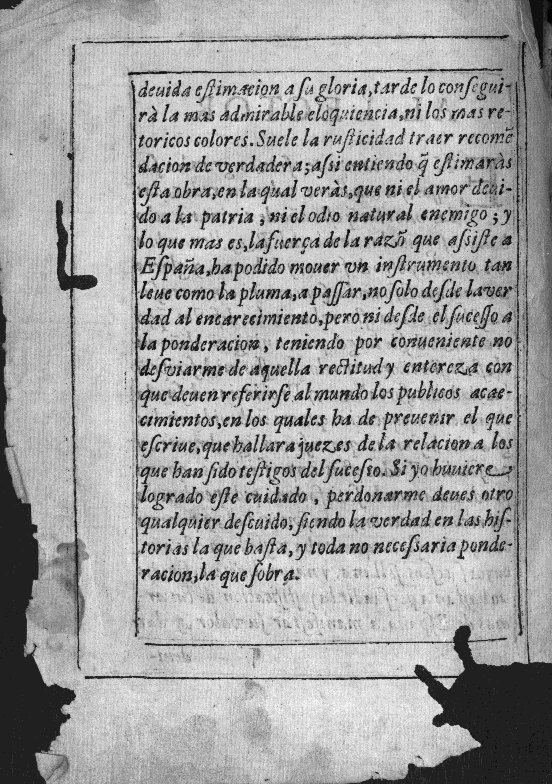 deuida estimacion a su gloria, tarde lo consegui-
rà la mas admirable eloquiencia, ni los mas re-
toricos colores. Suele la rusticidad traer recomẽ
dacion de verdadera; assi entiendo q̃ estimaràs
esta obra, en la qual veràs, que ni el amor deui-
do a la patria, ni el odio natural enemigo; y
lo que mas es, la fuerça de la razõ que assiste a
España, ha podido mouer vn instrumento tan
leue como la pluma, a passar, no solo desde la ver
dad al encarecimiento, pero ni desde el sucesso a
la ponderacion, teniendo por conueniente no
desviarme de aquella rectitud y entereza con
que deuen referirse al mundo los publicos acae-
cimientos, en los quales ha de preuenir el que
escriue, que hallara juezes de la relacion a los
que han sido testigos del sucesso. Si yo huuiere
logrado este cuidado, perdonarme deues otro
qualquier descuido, siendo la verdad en las his-
torias la que basta, y toda no necessaria ponde-
racion, la que sobra.